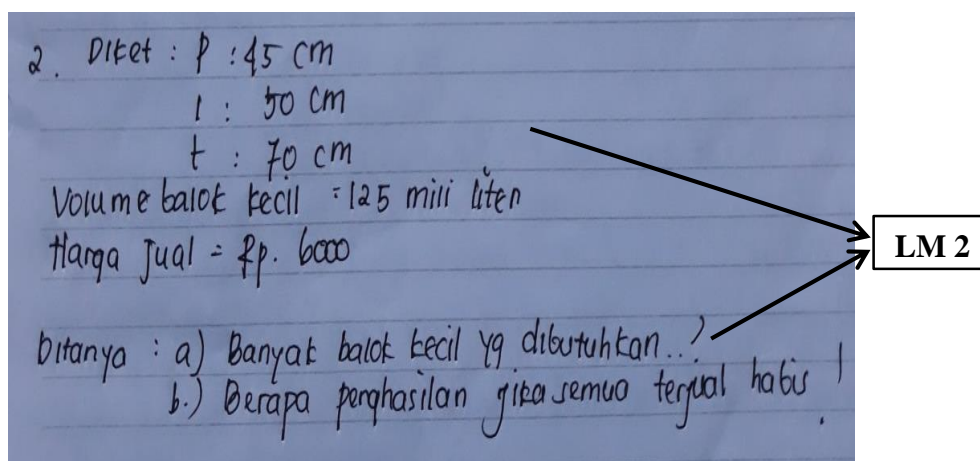 2. Diket : P : 45 cm
l : 50 cm
t : 70 cm
Volume balok kecil = 125 mili liter
Harga Jual = Rp. 6000
LM 2
Ditanya : a) Banyak balok kecil yg dibutuhkan..?
b.) Berapa penghasilan jika semua terjual habis !